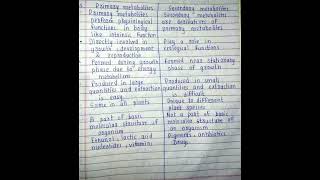 Primary metabolites
Secondary metabolites
Primary metabolites
perform physiological
functions in body
like intrinsic function
Secondary metabolites
are derivatives of
primary metabolites
Directly involved in
growth development
& reproduction
Play a role in
ecological functions
Formed during growth
phase due to energy
metabolism
Formed near stationary
phase of growth
Produced in large
quantities and extraction
is easy
Produced in small
quantities and extraction
is difficult
Same in all plants
Unique to different
plant species
A part of basic
molecular structure of
organism
Not a part of basic
molecular structure of
an organism
Ethanol, lactic acid
nucleotides, vitamins
Pigments, antibiotics
Drugs